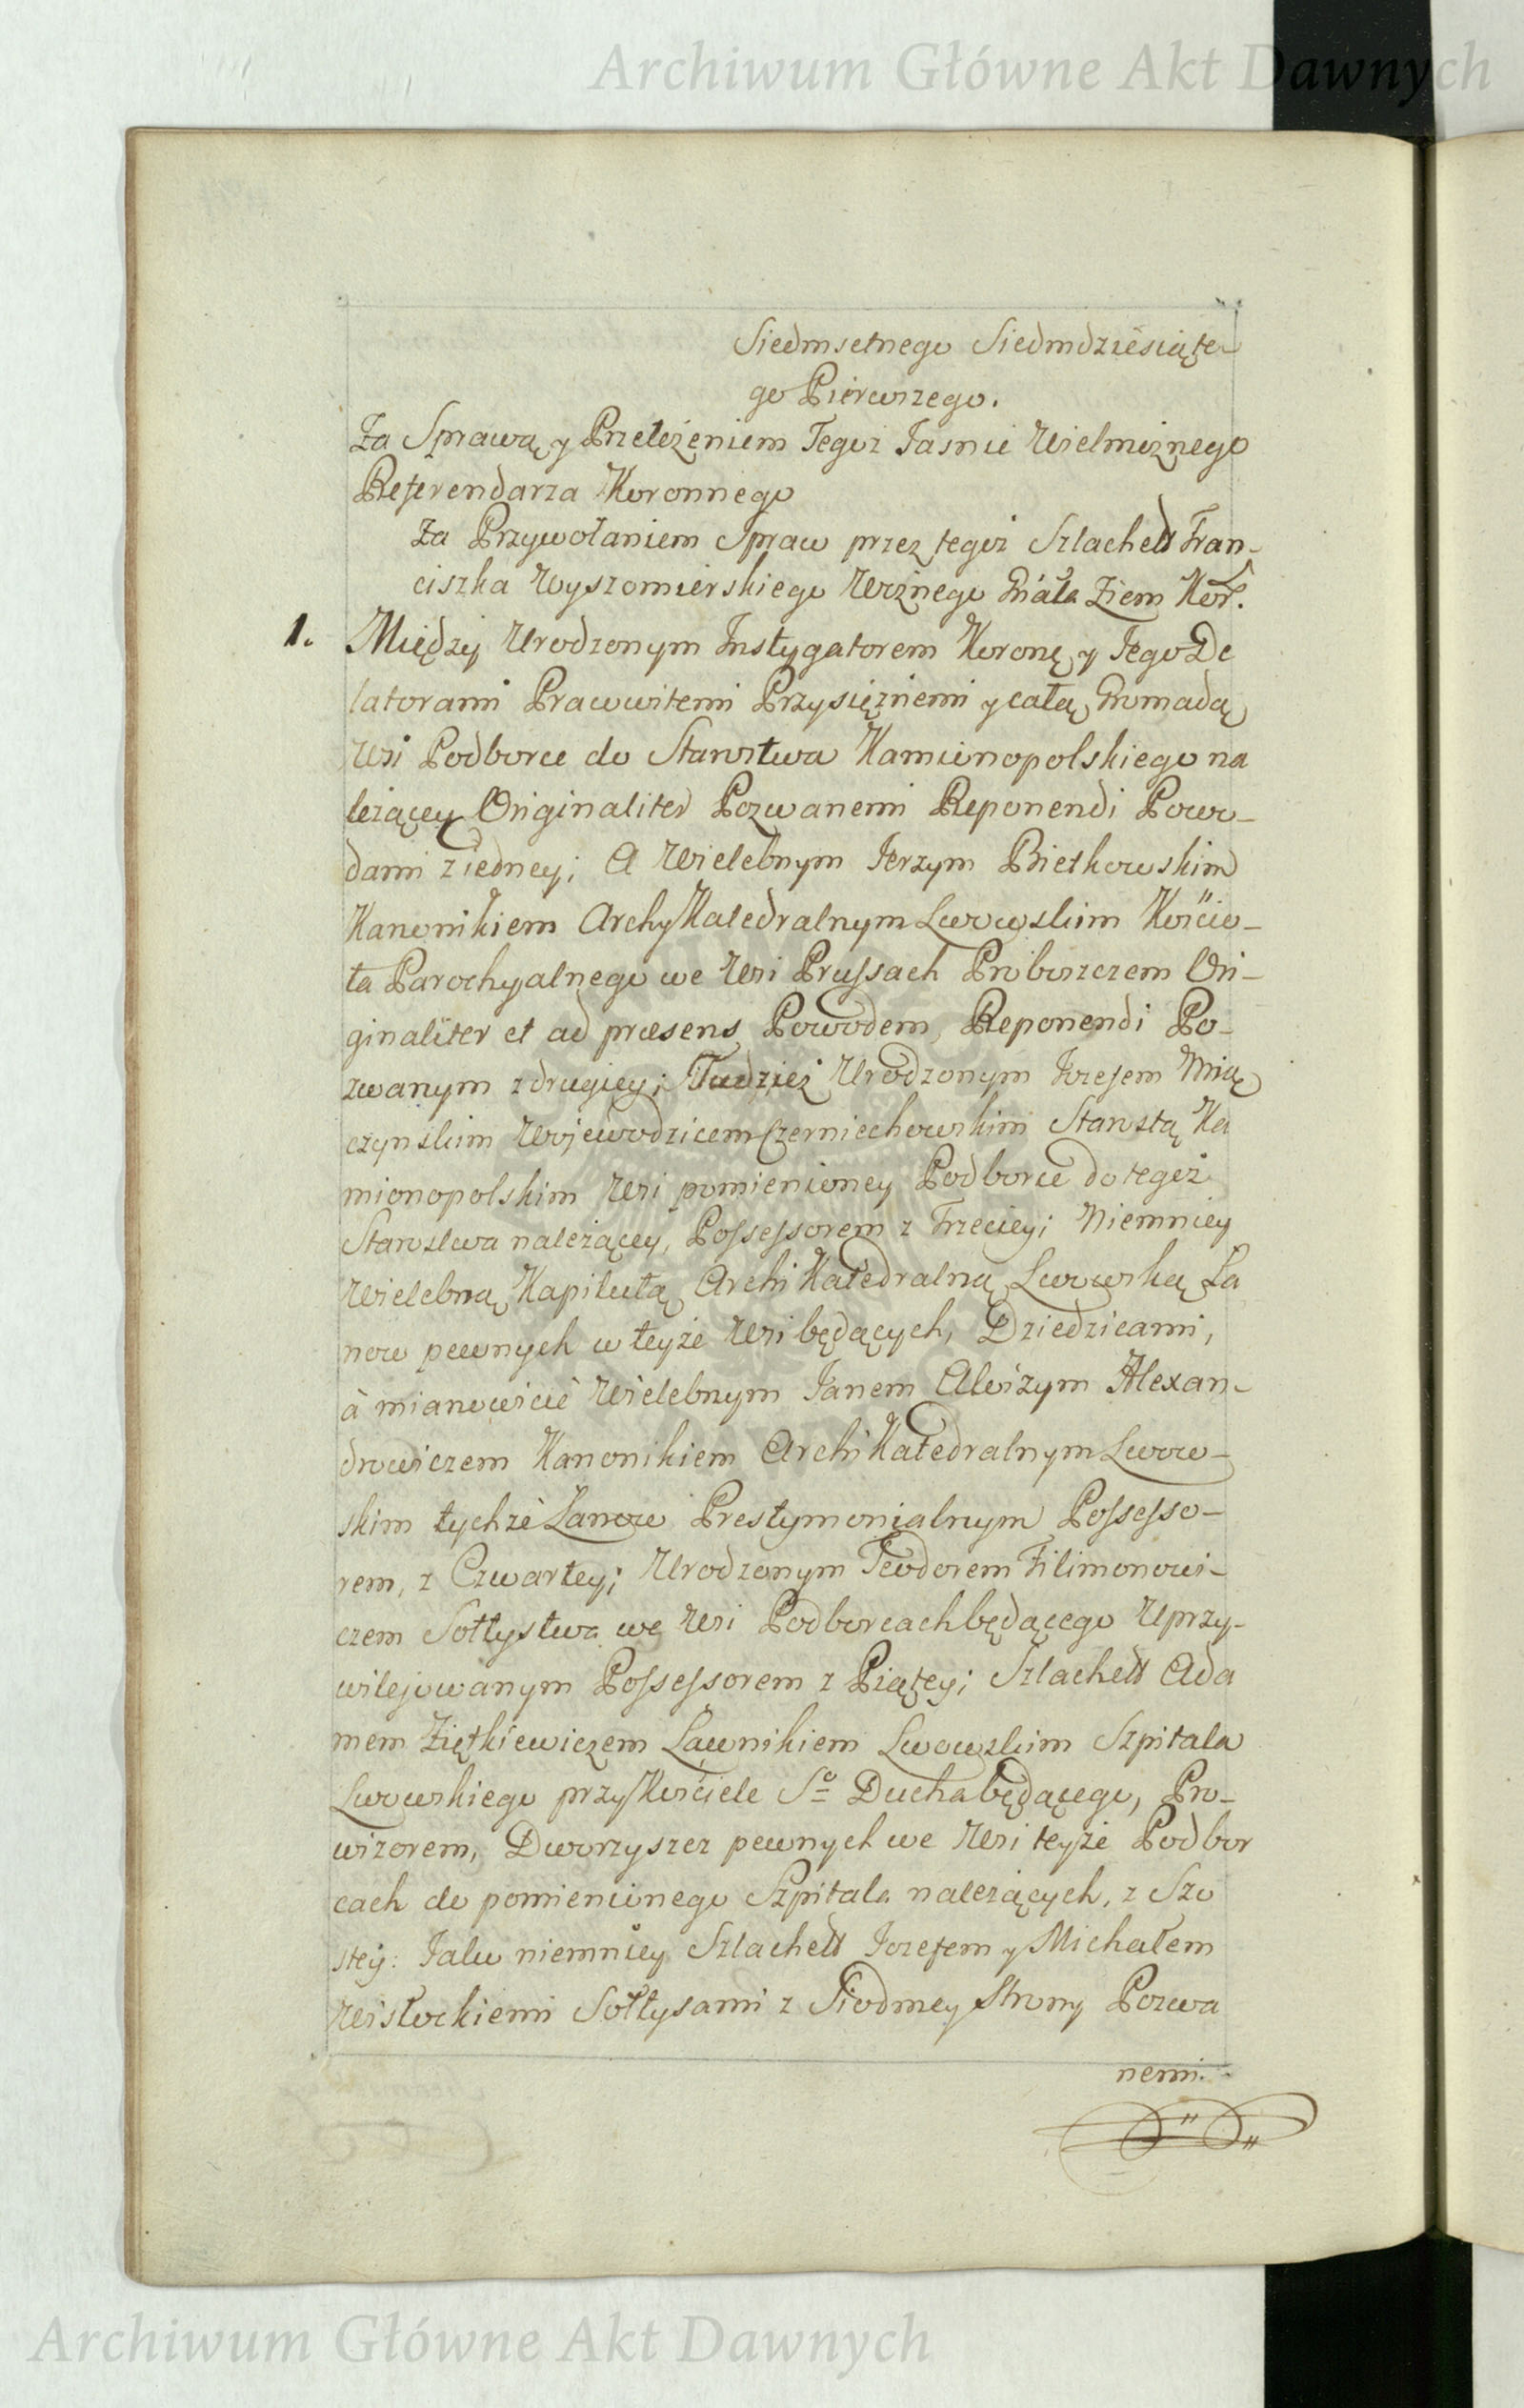 Archiwum Główne Akt Dawnych
Siedmsetnego Siedmdziesiąte-
go Pierwszego.
Za Sprawą y Przełożeniem Tegoż Jasnie Wielmożnego
Referendarza Koronnego
Za Przywołaniem Spraw przez tegoż Szlachett Fran-
ciszka Wyszomierskiego Woźnego Gnała Ziem Kor.
1. Między Urodzonym Instygatorem Koroną y Jego De
latorami Pracowitemi Przysiężniemi y całą Gromadą
Wsi Podborce do Starostwa Kamionopolskiego na
leżącey Originaliter Pozwanemi Reponendi Powo-
dami z iedney; A Wielebnym Jerzym Pietkowskim
Kanonikiem ArchyKatedralnym Lwowskim Kościo-
ła Parochyalnego we Wsi Prussach Proboszczem Ori-
ginaliter et ad præsens Powodem, Reponendi Po-
zwanym z drugiey; Tudzież Urodzonym Jozefem Mią
czynskim Wojewodzicem Czerniechowskim Starostą Ka
mionopolskim Wsi pomienioney Podborce do tegoż
Starostwa należącey, Possessorem z Trzeciey; Niemniey
Wielebną Kapitułą ArchiKatedralną Lwowską Ła
now pewnych w teyże Wsi będących, Dziedzicami,
à mianowicie Wielebnym Janem Aloizym Alexan-
drowiczem Kanonikiem ArchiKatedralnym Lwow-
skim tychże Łanow Prestymonialnym Possesso-
rem, z Czwartey; Urodzonym Teodorem Filimonowi-
czem Sołtystwa we Wsi Podborcach będącego Uprzy-
wilejowanym Possessorem z Piątey; Szlachett Ada
mem Ziętkiewiczem Ławnikiem Lwowskim Szpitala
Lwowskiego przy Kościele So Ducha będącego, Pro-
wizorem, Dworzyszcz pewnych we Wsi teyże Podbor
cach do pomienionego Szpitala należących, z Szo
stey: Jako niemniey Szlachett Jozefem y Michałem
Wisłockiemi Sołtysami z Siodmey Strony Pozwa
nemi.
Archiwum Główne Akt Dawnych